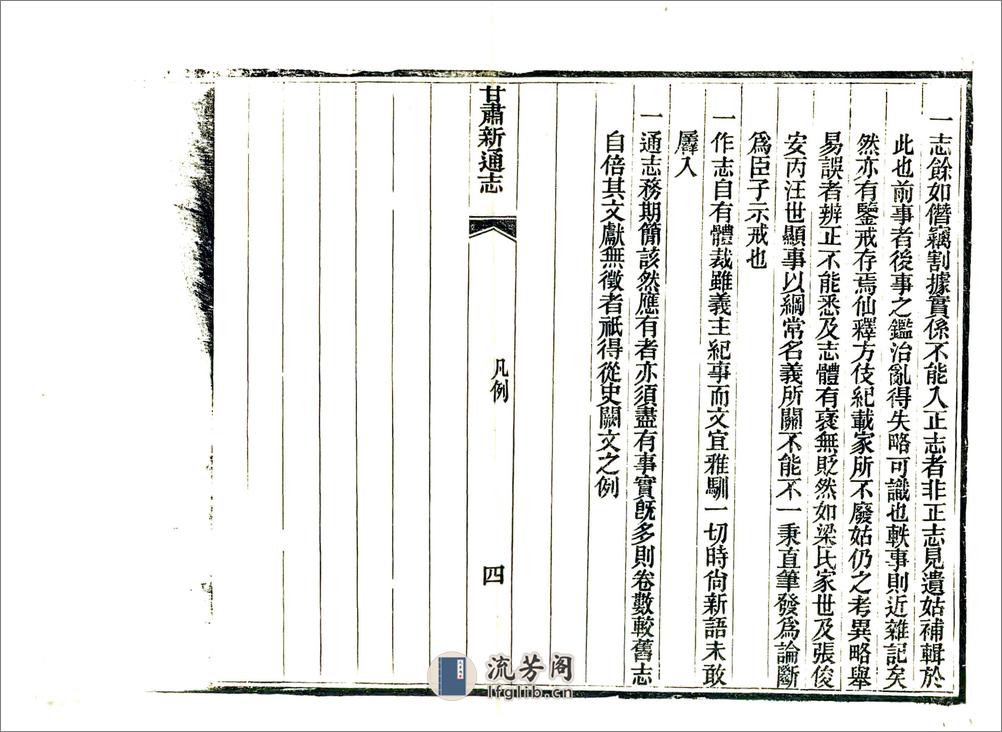 一志餘如僭竊割據實係不能入正志者非正志見遺姑補輯於
此也前事者後事之鑑治亂得失略可識也軼事則近雜記矣
然亦有鑒戒存焉仙釋方伎紀載家所不廢姑仍之考異略舉
易誤者辨正不能悉及志體有褒無貶然如梁氏家世及張俊
安丙汪世顯事以綱常名義所關不能不一秉直筆發爲論斷
爲臣子示戒也
一作志自有體裁雖義主紀事而文宜雅馴一切時尙新語未敢
羼入
一通志務期簡該然應有者亦須盡有事實旣多則卷數較舊志
自倍其文獻無徵者祇得從史闕文之例
甘肅新通志
凡例
四
流芳阁
lfglib.cn